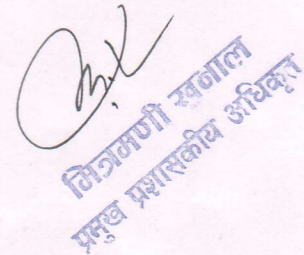 मित्रमणी खनाल
प्रमुख प्रशासकीय अधिकृत